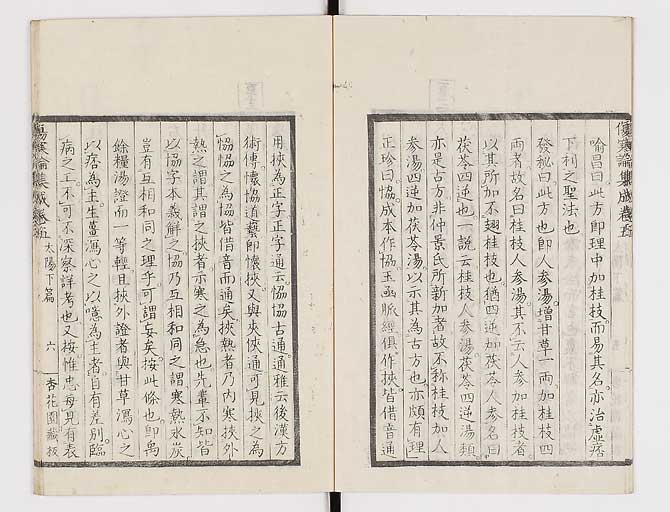 傷寒論集成卷五
喻昌曰此方即理中加桂枝而易其名亦治虛痞
下利之聖法也
發秘曰此方也即人參湯增甘草一兩加桂枝四
兩者故名曰桂枝人參湯其不云人參加桂枝者
以其所加不翅桂枝也猶四逆加茯苓人參名曰
茯苓四逆也一說云桂枝人參湯茯苓四逆湯類
亦是古方非仲景氏所新加者故不稱桂枝加人
參湯四逆加茯苓湯以示其為古方也亦頗有理
正珍曰協成本作協玉函脈經俱作挾皆借音通
用挾為正字正字通云恊協古通通雅云後漢方
術傳懷協道藝即懷挾又與夾俠通可見挾之為
恊恊之為協皆借音而通矣挾熱者乃內寒挾外
熱之謂其謂之挾者示寒之為急也先輩不知皆
以協字本義解之協乃互相和同之謂寒熱水炭
豈有互相和同之理乎可謂妄矣按此條也即禹
餘糧湯證而一等輕且挾外證者與甘草瀉心之
以痞為主生薑瀉心之以噫為主者自有差別臨
病之工不可不深察詳考也又按惟忠每見有表
傷寒論集成卷五 太陽下篇 六 杏花園藏板